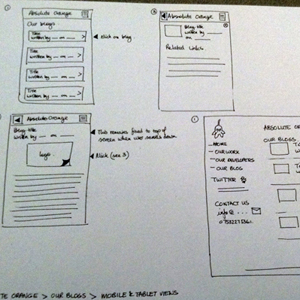 Absolute Orange
Our blogs
Title
written by — on —
Title
written by — on —
Title
written by — on —
Title
written by — on —
click on blog
Absolute Orange
Blog title
written by
on
Related Links
Absolute Orange
Blog title
written by
on
logo
This remains fixed to top of
screen when user scrolls down
HOME
OUR WORK
OUR DEVELOPERS
OUR BLOG
TWITTER
CONTACT US
info@
ABSOLUTE OR
OUR BLOGS
TE ORANGE > OUR BLOGS > MOBILE & TABLET VIEWS